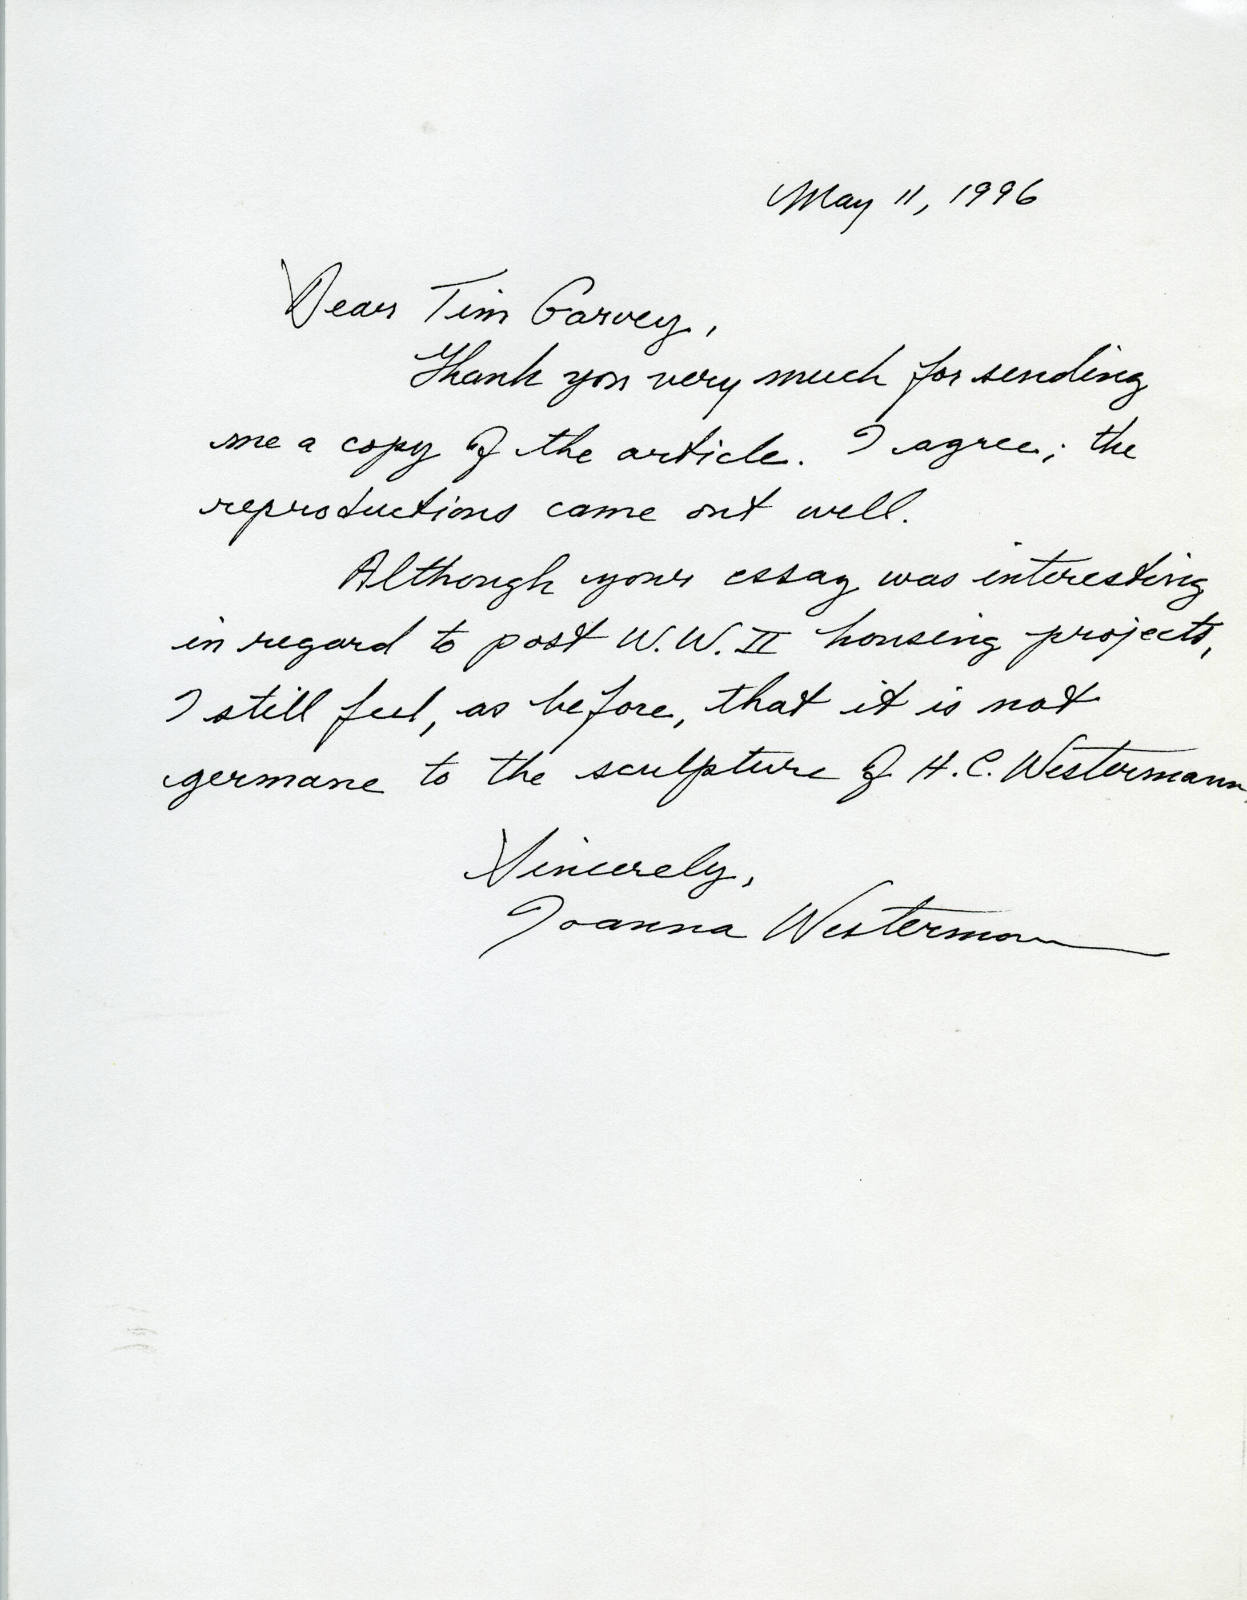 May 11, 1996
Dear Tim Garvey,
Thank you very much for sending
me a copy of the article. I agree; the
reproductions came out well.
Although your essay was interesting
in regard to post W.W. II housing projects,
I still feel, as before, that it is not
germane to the sculpture of H. C. Westermann.
Sincerely,
Joanna Westermann